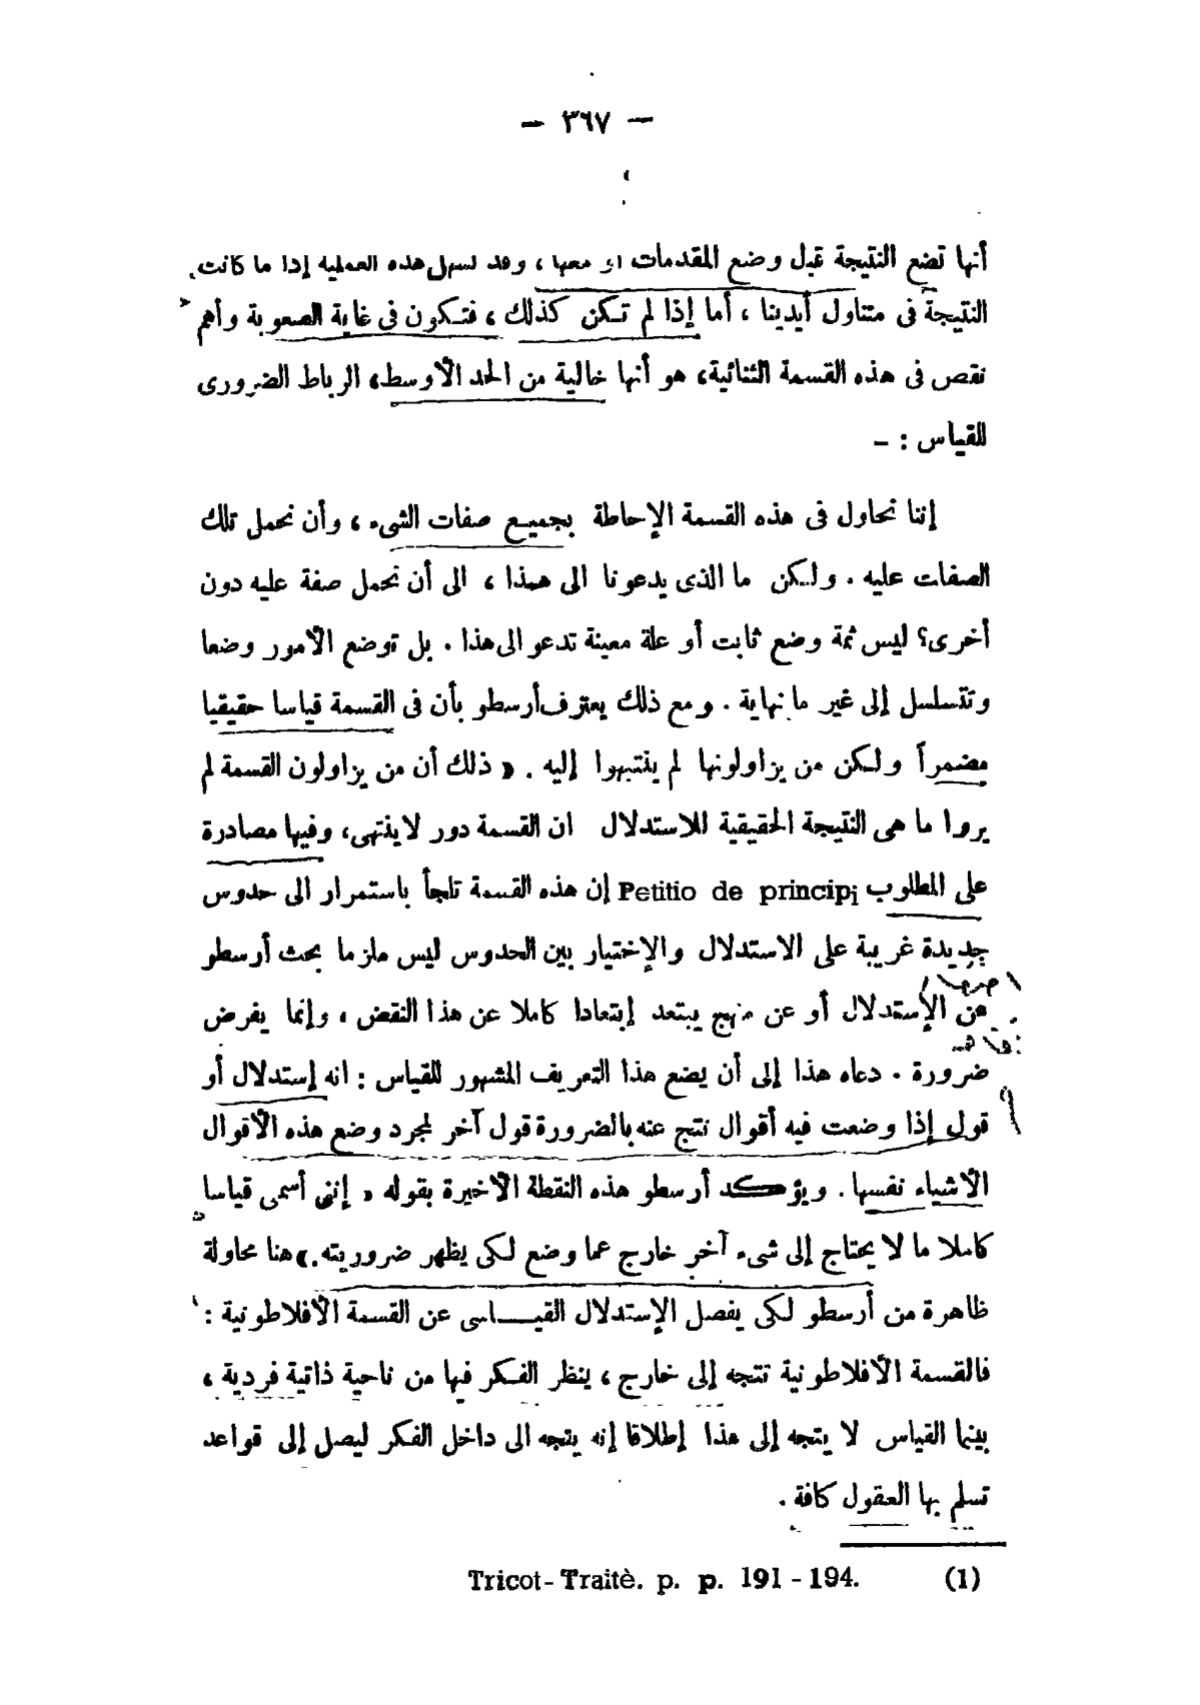 — ٣٦٧ —
أنها تضع النتيجة قبل وضع المقدمات أو معها ، وقد تسهل هذه العملية إذا ما كانت
النتيجة فى متناول أيدينا ، أما إذا لم تكن كذلك ، فتكون فى غاية الصعوبة وأهم
نقص فى هذه القسمة الثنائية، هو أنها خالية من الحد الأوسط، الرباط الضرورى
للقياس : –
إننا نحاول فى هذه القسمة الإحاطة بجميع صفات الشىء ، وأن نحمل تلك
الصفات عليه . ولكن ما الذى يدعونا الى هذا ، الى أن نحمل صفة عليه دون
أخرى؟ ليس ثمة وضع ثابت أو علة معينة تدعو الى هذا . بل توضع الأمور وضعا
وتتسلسل إلى غير ما نهاية . ومع ذلك يعترف أرسطو بأن فى القسمة قياسا حقيقيا
مضمراً ولكن من يزاولونها لم ينتبهوا إليه . « ذلك أن من يزاولون القسمة لم
يروا ما هى النتيجة الحقيقية للاستدلال ان القسمة دور لاينتهى، وفيها مصادرة
على المطلوب Petitio de principi إن هذه القسمة تلجأ باستمرار الى حدوس
جديدة غريبة على الاستدلال والإختيار بين الحدوس ليس ملزما بحث أرسطو
عن الإستدلال أو عن منهج يبتعد إبتعادا كاملا عن هذا النقض ، وإنما يفرض
ضرورة . دعاه هذا إلى أن يضع هذا التعريف المشهور للقياس : انه إستدلال أو
قول إذا وضعت فيه أقوال نتج عنه بالضرورة قول آخر لمجرد وضع هذه الأقوال
الأشياء نفسها . ويؤكد أرسطو هذه النقطة الأخيرة بقوله « إننى أسمى قياسا
كاملا ما لا يحتاج إلى شىء آخر خارج عما وضع لكى يظهر ضروريته.» هنا محاولة
ظاهرة من أرسطو لكى يفصل الإستدلال القياسى عن القسمة الأفلاطونية :
فالقسمة الأفلاطونية تتجه إلى خارج ، ينظر الفكر فيها من ناحية ذاتية فردية ،
بينما القياس لا يتجه إلى هذا إطلاقا إنه يتجه الى داخل الفكر ليصل إلى قواعد
تسلم بها العقول كافة .
(1) Tricot- Traitè. p. p. 191 - 194.